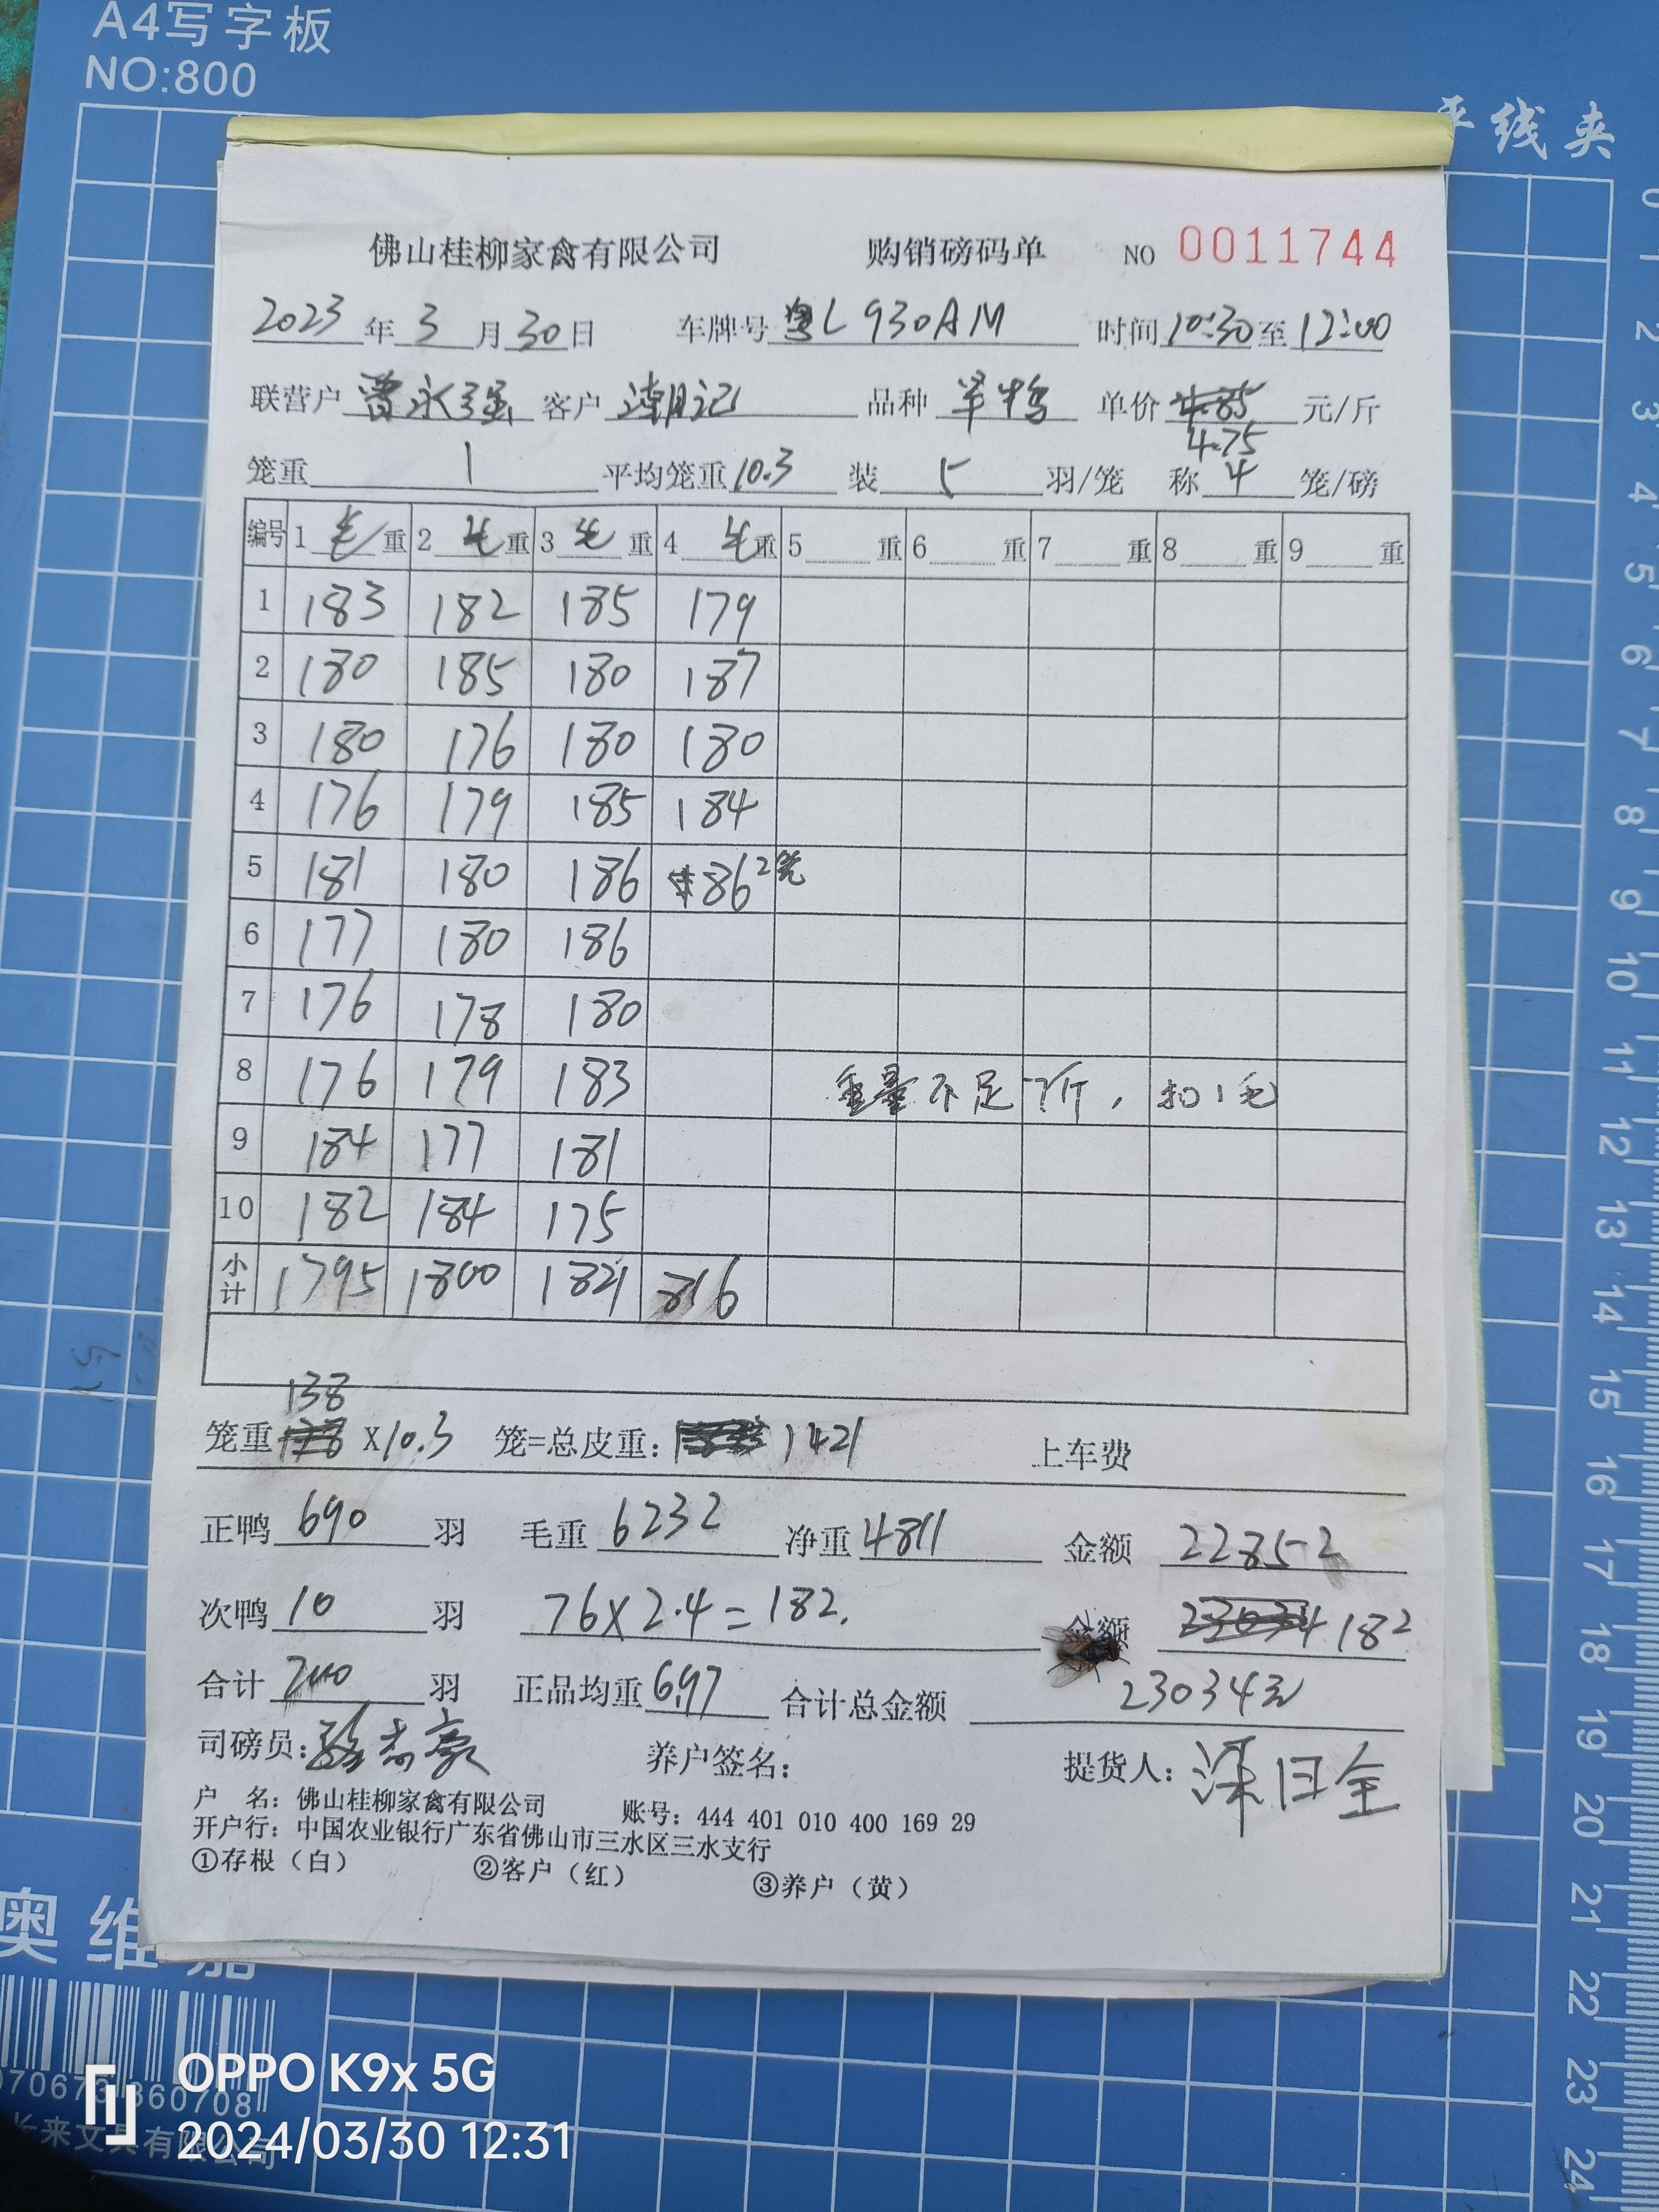 A4写字板
NO:800
平线夹
佛山桂柳家禽有限公司 购销磅码单 NO 0011744
2023年3月30日 车牌号 粤L930AM 时间 10:30至12:00
联营户 曾永强 客户 潮记 品种 单价 4.85 元/斤
4.75
笼重 1 平均笼重10.3 装 5 羽/笼 称 4 笼/磅
编号 1 毛 重 2 毛 重 3 毛 重 4 毛 重 5 重 6 重 7 重 8 重 9 重
1 183 182 185 179
2 180 185 180 187
3 180 176 180 180
4 176 179 185 184
5 181 180 186 86 2笼
6 177 180 186
7 176 178 180
8 176 179 183 重量不足7斤，扣1毛
9 184 177 181
10 182 184 175
小计 1795 1800 1821 816
138
笼重 X10.3 笼=总皮重: 1421 上车费
正鸭 690 羽 毛重 6232 净重 4811 金额 22852
次鸭 10 羽 76×2.4=182. 金额 23034 182
合计 700 羽 正品均重 6.97 合计总金额 23034元
司磅员: 养户签名: 提货人:
户 名: 佛山桂柳家禽有限公司 账号: 444 401 010 400 169 29
开户行: 中国农业银行广东省佛山市三水区三水支行
①存根（白） ②客户（红） ③养户（黄）
奥维
OPPO K9x 5G
2024/03/30 12:31
0 1 2 3 4 5 6 7 8 9 10 11 12 13 14 15 16 17 18 19 20 21 22 23 24